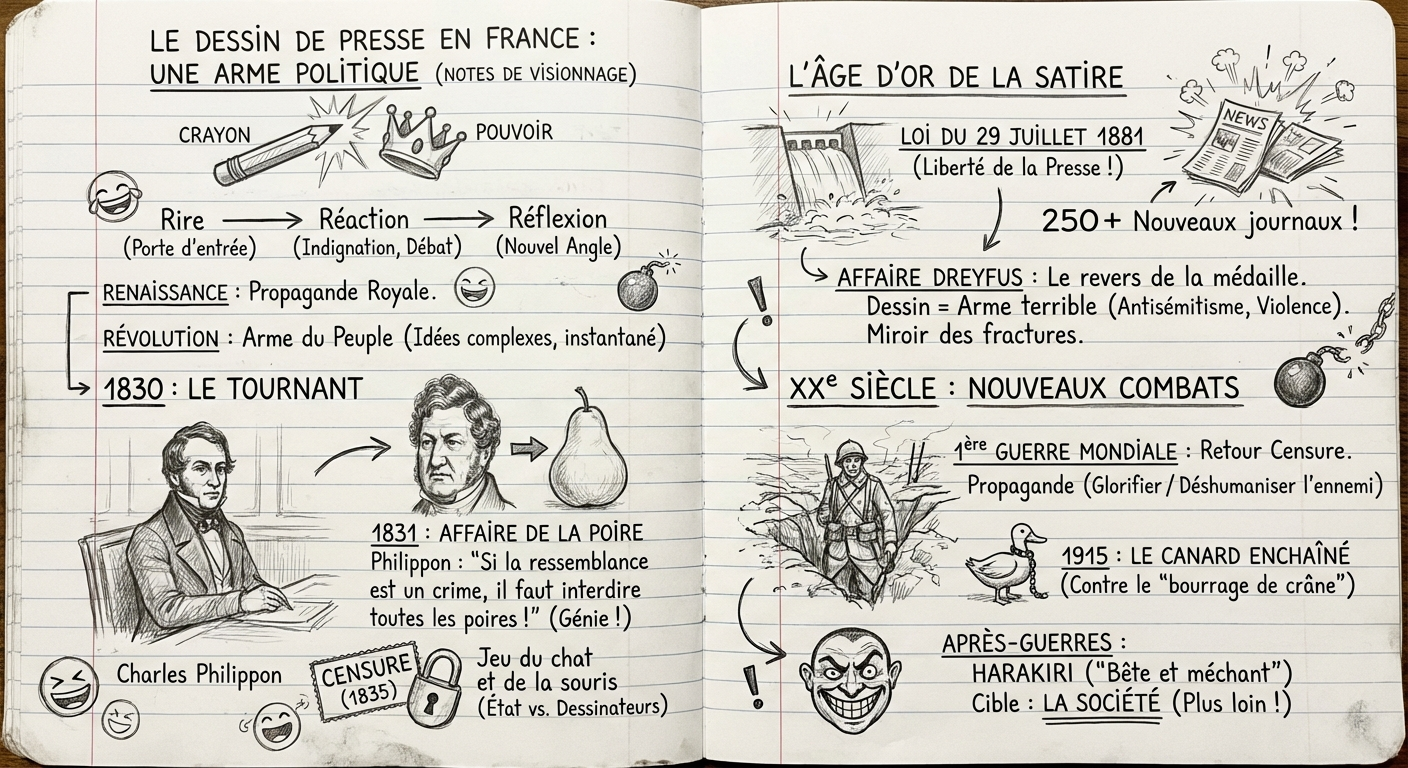 LE DESSIN DE PRESSE EN FRANCE :
UNE ARME POLITIQUE (NOTES DE VISIONNAGE)
CRAYON
POUVOIR
Rire → Réaction → Réflexion
(Porte d'entrée) (Indignation, Débat) (Nouvel Angle)
RENAISSANCE : Propagande Royale.
RÉVOLUTION : Arme du Peuple (Idées complexes, instantané)
1830 : LE TOURNANT
1831 : AFFAIRE DE LA POIRE
Philippon : "Si la ressemblance
est un crime, il faut interdire
toutes les poires !" (Génie !)
Charles Philippon
CENSURE
(1835)
Jeu du chat
et de la souris
(État vs. Dessinateurs)
L'ÂGE D'OR DE LA SATIRE
LOI DU 29 JUILLET 1881
(Liberté de la Presse !)
NEWS
250+ Nouveaux journaux !
AFFAIRE DREYFUS : Le revers de la médaille.
Dessin = Arme terrible (Antisémitisme, Violence).
Miroir des fractures.
!
XXe SIÈCLE : NOUVEAUX COMBATS
1ère GUERRE MONDIALE : Retour Censure.
Propagande (Glorifier / Déshumaniser l'ennemi)
1915 : LE CANARD ENCHAÎNÉ
(Contre le "bourrage de crâne")
!
APRÈS-GUERRES :
HARAKIRI ("Bête et méchant")
Cible : LA SOCIÉTÉ (Plus loin !)